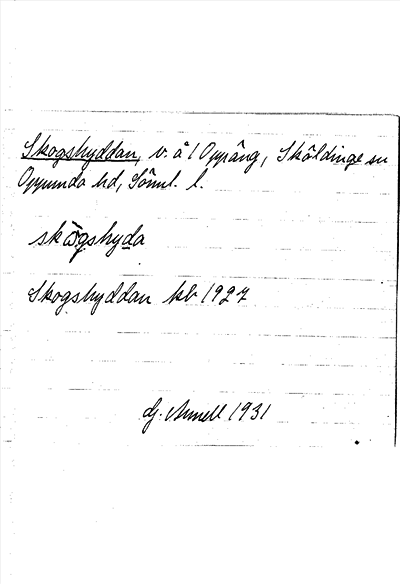 Skogshyddan, v. å 1 Oppäng, Sköldinge sn
Oppunda hd, Söml. l.
skògshyda
Skogshyddan kb 1927
G. Annell 1931